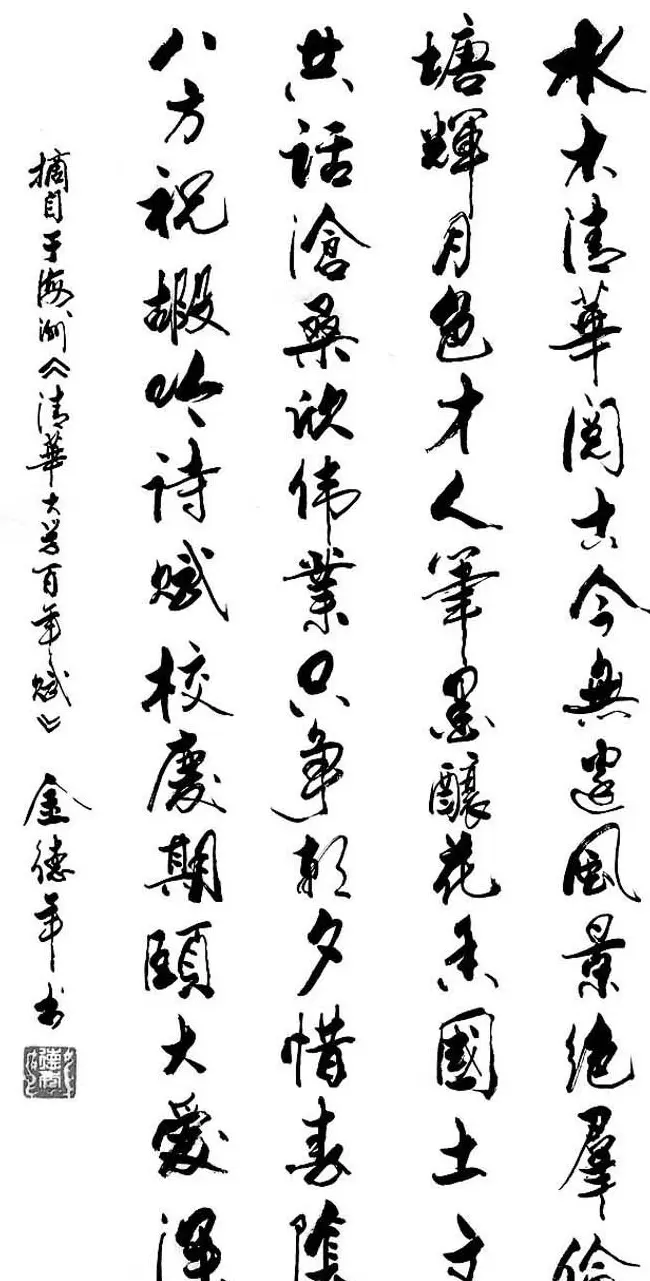 水木清華閱古今無邊風景絕羣倫
塘輝月色才人筆墨釀花香國土文
共話滄桑欣伟業只爭朝夕惜春陰
八方祝嘏吟詩賦校慶期頤大愛
摘自于海洲《清華大学百年賦》 金德年书